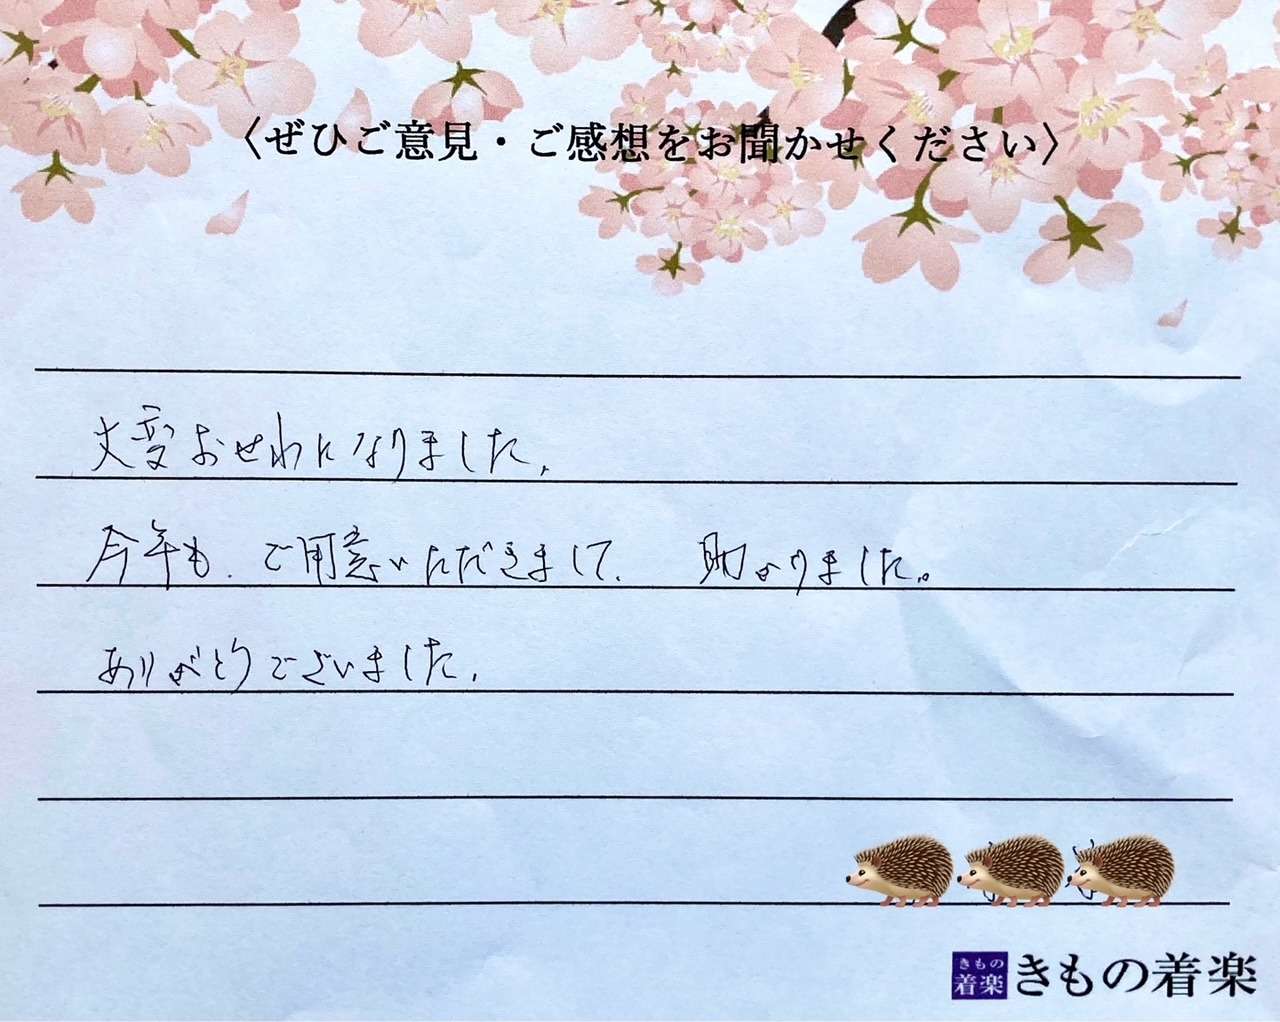 〈ぜひご意見・ご感想をお聞かせください〉
大変おせわになりました.
今年も. ご用意いただきまして. 助かりました。
ありがとうございました.
きもの
着楽
きもの着楽